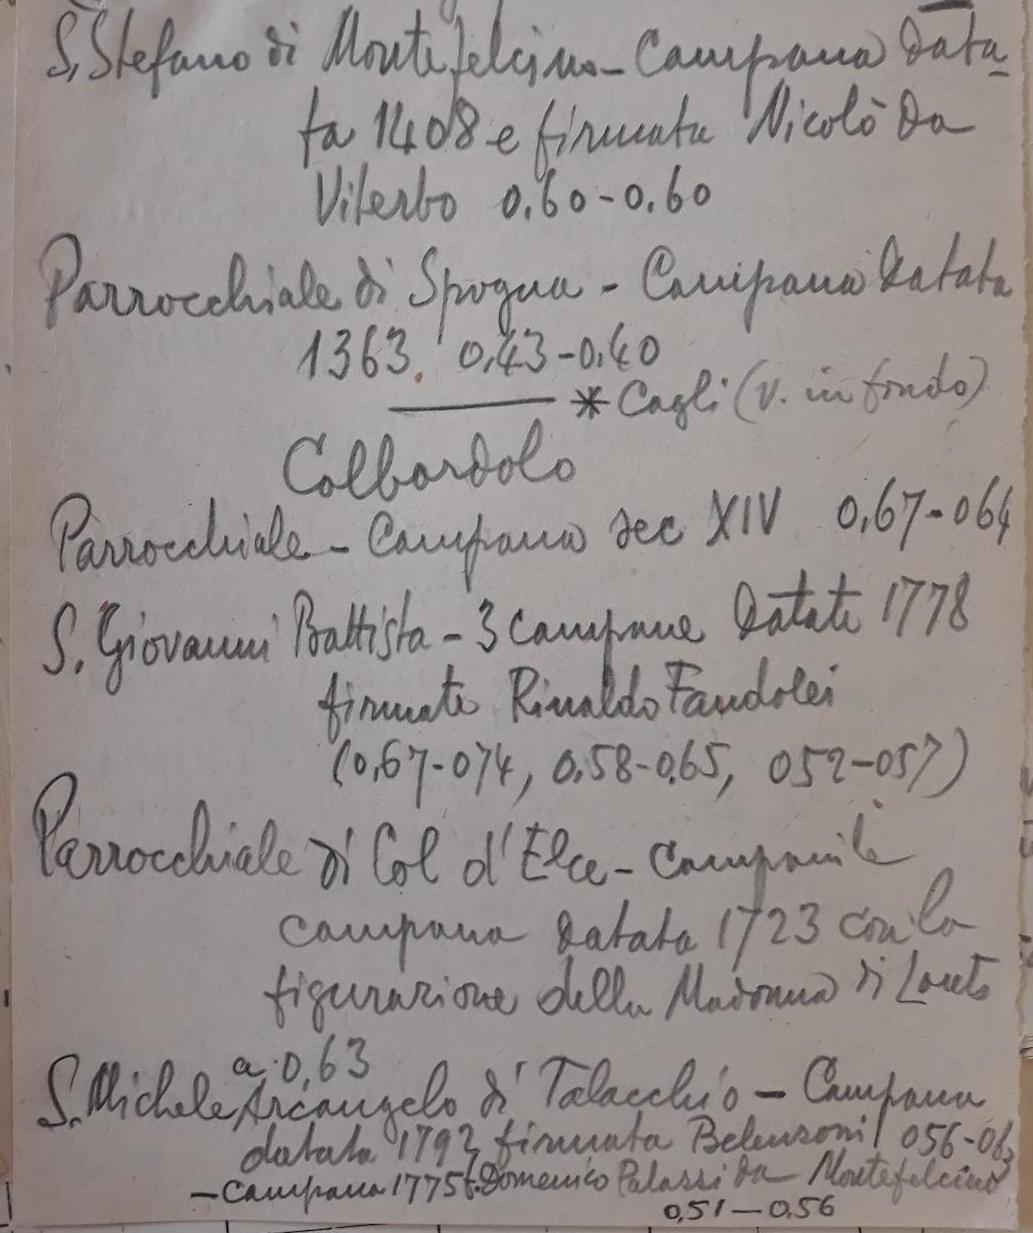 S. Stefano di Montefelcino - Campana data-
ta 1408 e firmata Nicolò da
Viterbo 0,60-0,60
Parrocchiale di Spogna - Campana datata
1363. 0,43-0,40
* Cagli (v. in fondo)
Colbordolo
Parrocchiale - Campana sec XIV 0,67-064
S. Giovanni Battista - 3 campane datate 1778
firmate Rinaldo Fandolei
(0,67-074, 0,58-0,65, 052-057)
Parrocchiale di Col d'Elce - Campanile
campana datata 1723 con la
figurazione della Madonna di Loreto
a. 0,63
S. Michele Arcangelo di Talacchio - Campana
datata 1792 firmata Belenzoni 056-063
- Campana 1775 f. Domenico Palassi da Montefelcino
0,51-0,56